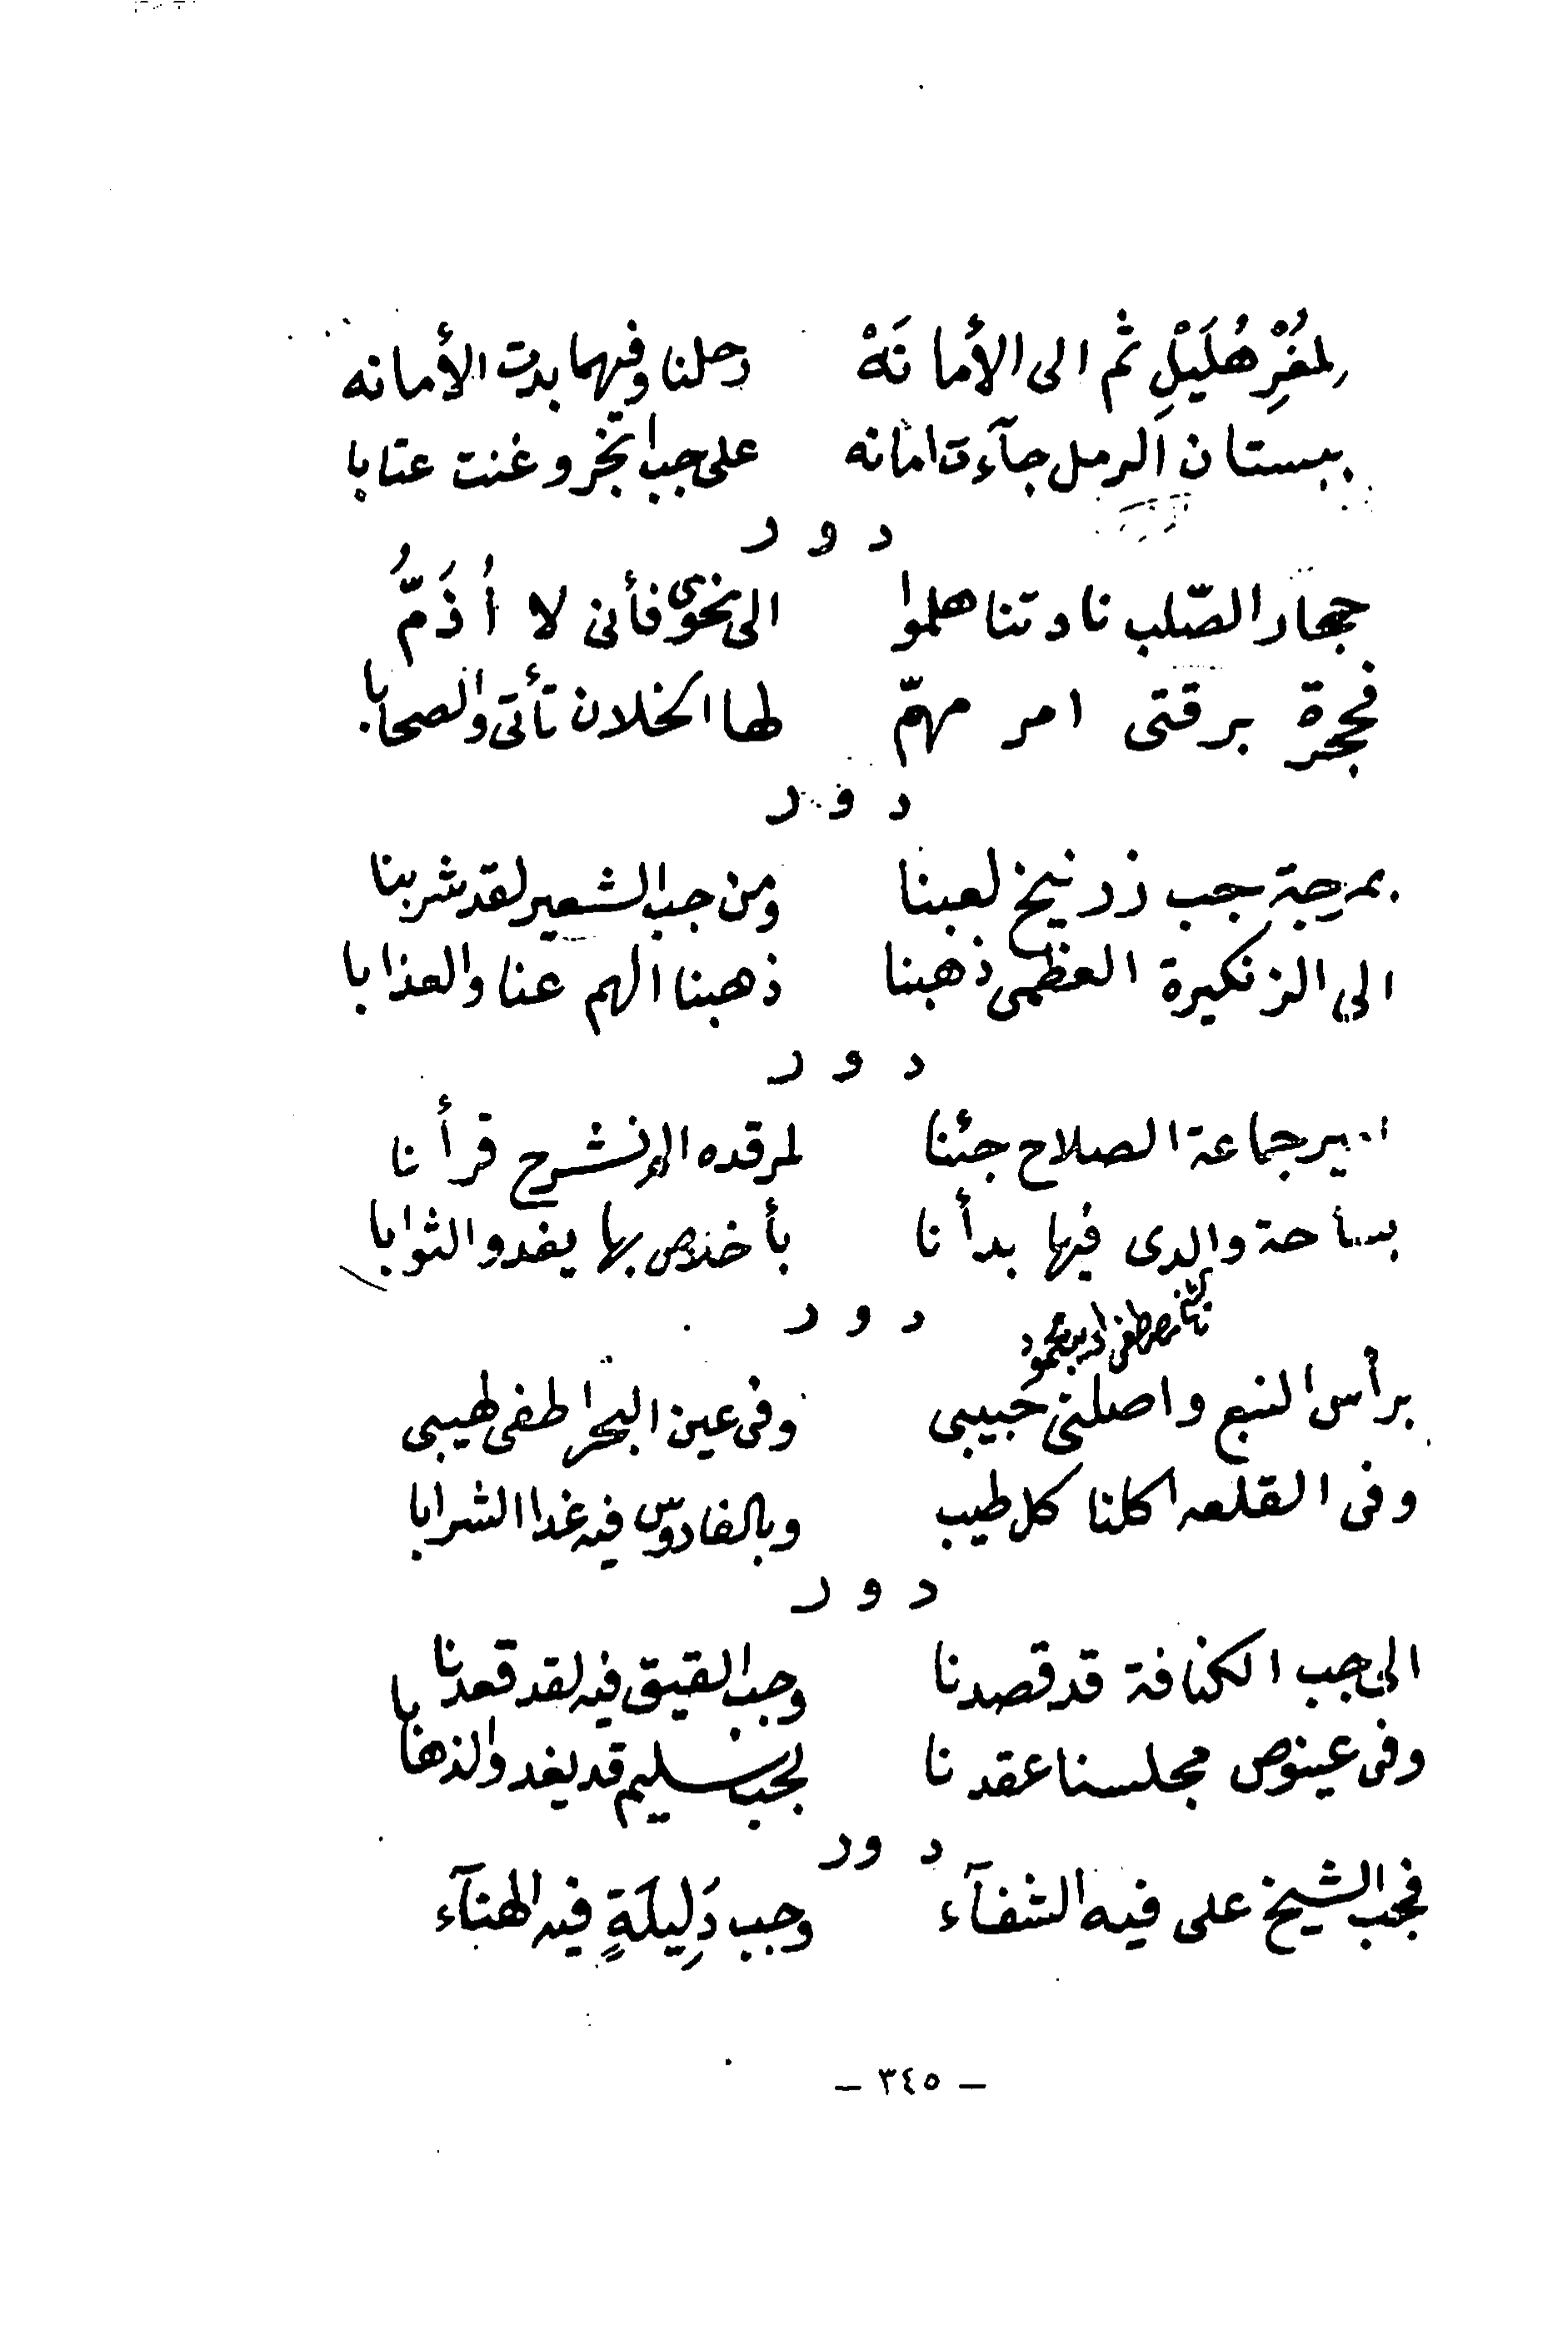 لمُغُرْ هُلَيْلِ ثم الى الأمانَهْ رحلنا وفيهما بدت الأمانه
ببستان الرمل جآءت امانه على جب انجر وغنت عتابا
دور
حجار الصّلب نادتنا هلموا الى نحوى فأنى لا أُذَمُّ
فحجرة برقتى امر مهمّ لها الخلان تأتى والصحابا
دور
بمرجة جب زرنيخ لعبنا ومن جب الشعير لقد شربنا
الى الزنكيرة العظمى ذهبنا ذهبنا الهم عنا والعذابا
دور
جماعة الصلاح جئنا لمرقده الإنشرح قرأنا
بساحة والدى فيها بدأنا بأخلاص بها يغدو الثوابا
دور
مصطفى محمود
برأس النبع واصلنى حبيبى وفى عين البحر اطفى لهيبى
وفى القلعه اكلنا كل طيب وبالفادوس فيه غدا الشرابا
دور
الى جب الكنافة قد قصدنا وجب القيق فيه لقد قعدنا
وفى عينوص مجلسنا عقدنا لجب سليم قد يغدو الذهابا
دور
فجب الشيخ على فيه الشفآء وجب دَلِيلَةٍ فيه الهنآء
– ٣٤٥ –